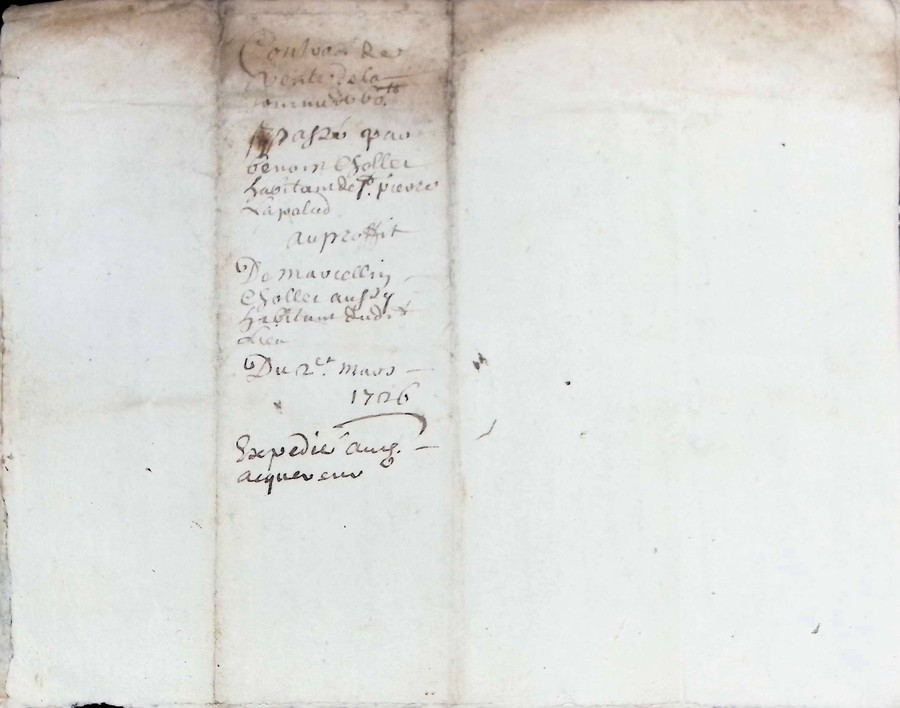 Contract de
Vente de la
somme de 60.tt
passé par
benoist Chollet
habitant de St. pierre
Lapalud
au proffit
De marcellin
Chollet aussy
habitant dudit
Lieu
Du 2.et mars
1726
Expedié aud.
acquereur